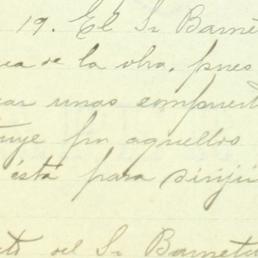 19. El Sr Barnet
de la obra, pues
unas compuert
tuye por aquellos
está para diriji
del Sr Barnet